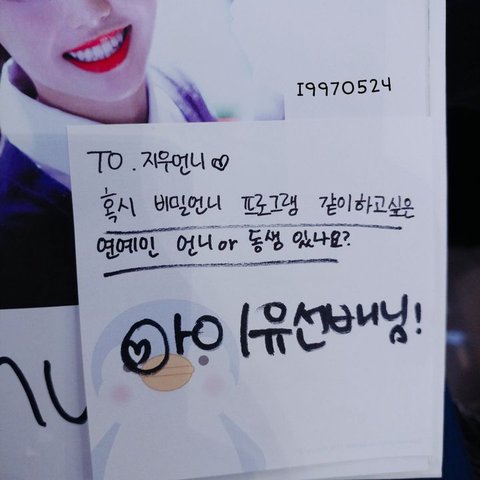 I9970524
TO. 지우언니♡
혹시 비밀언니 프로그램 같이하고싶은
연예인 언니 or 동생 있나요?
아이유선배님!